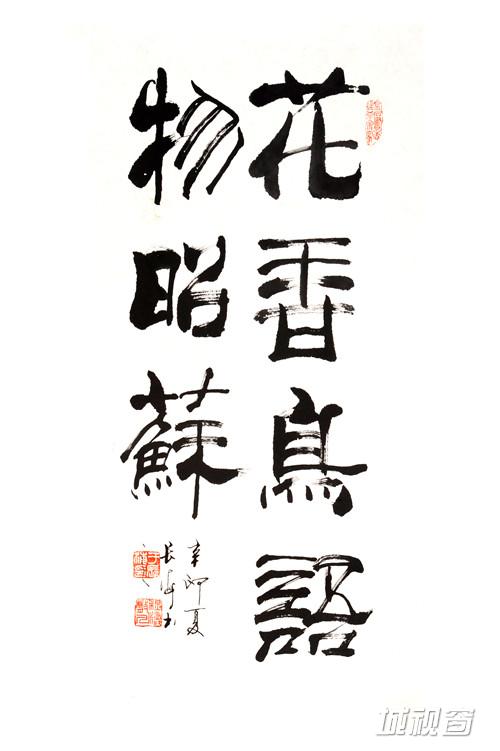 花香鳥語
物昭蘇
辛卯夏
長海书
城视窗